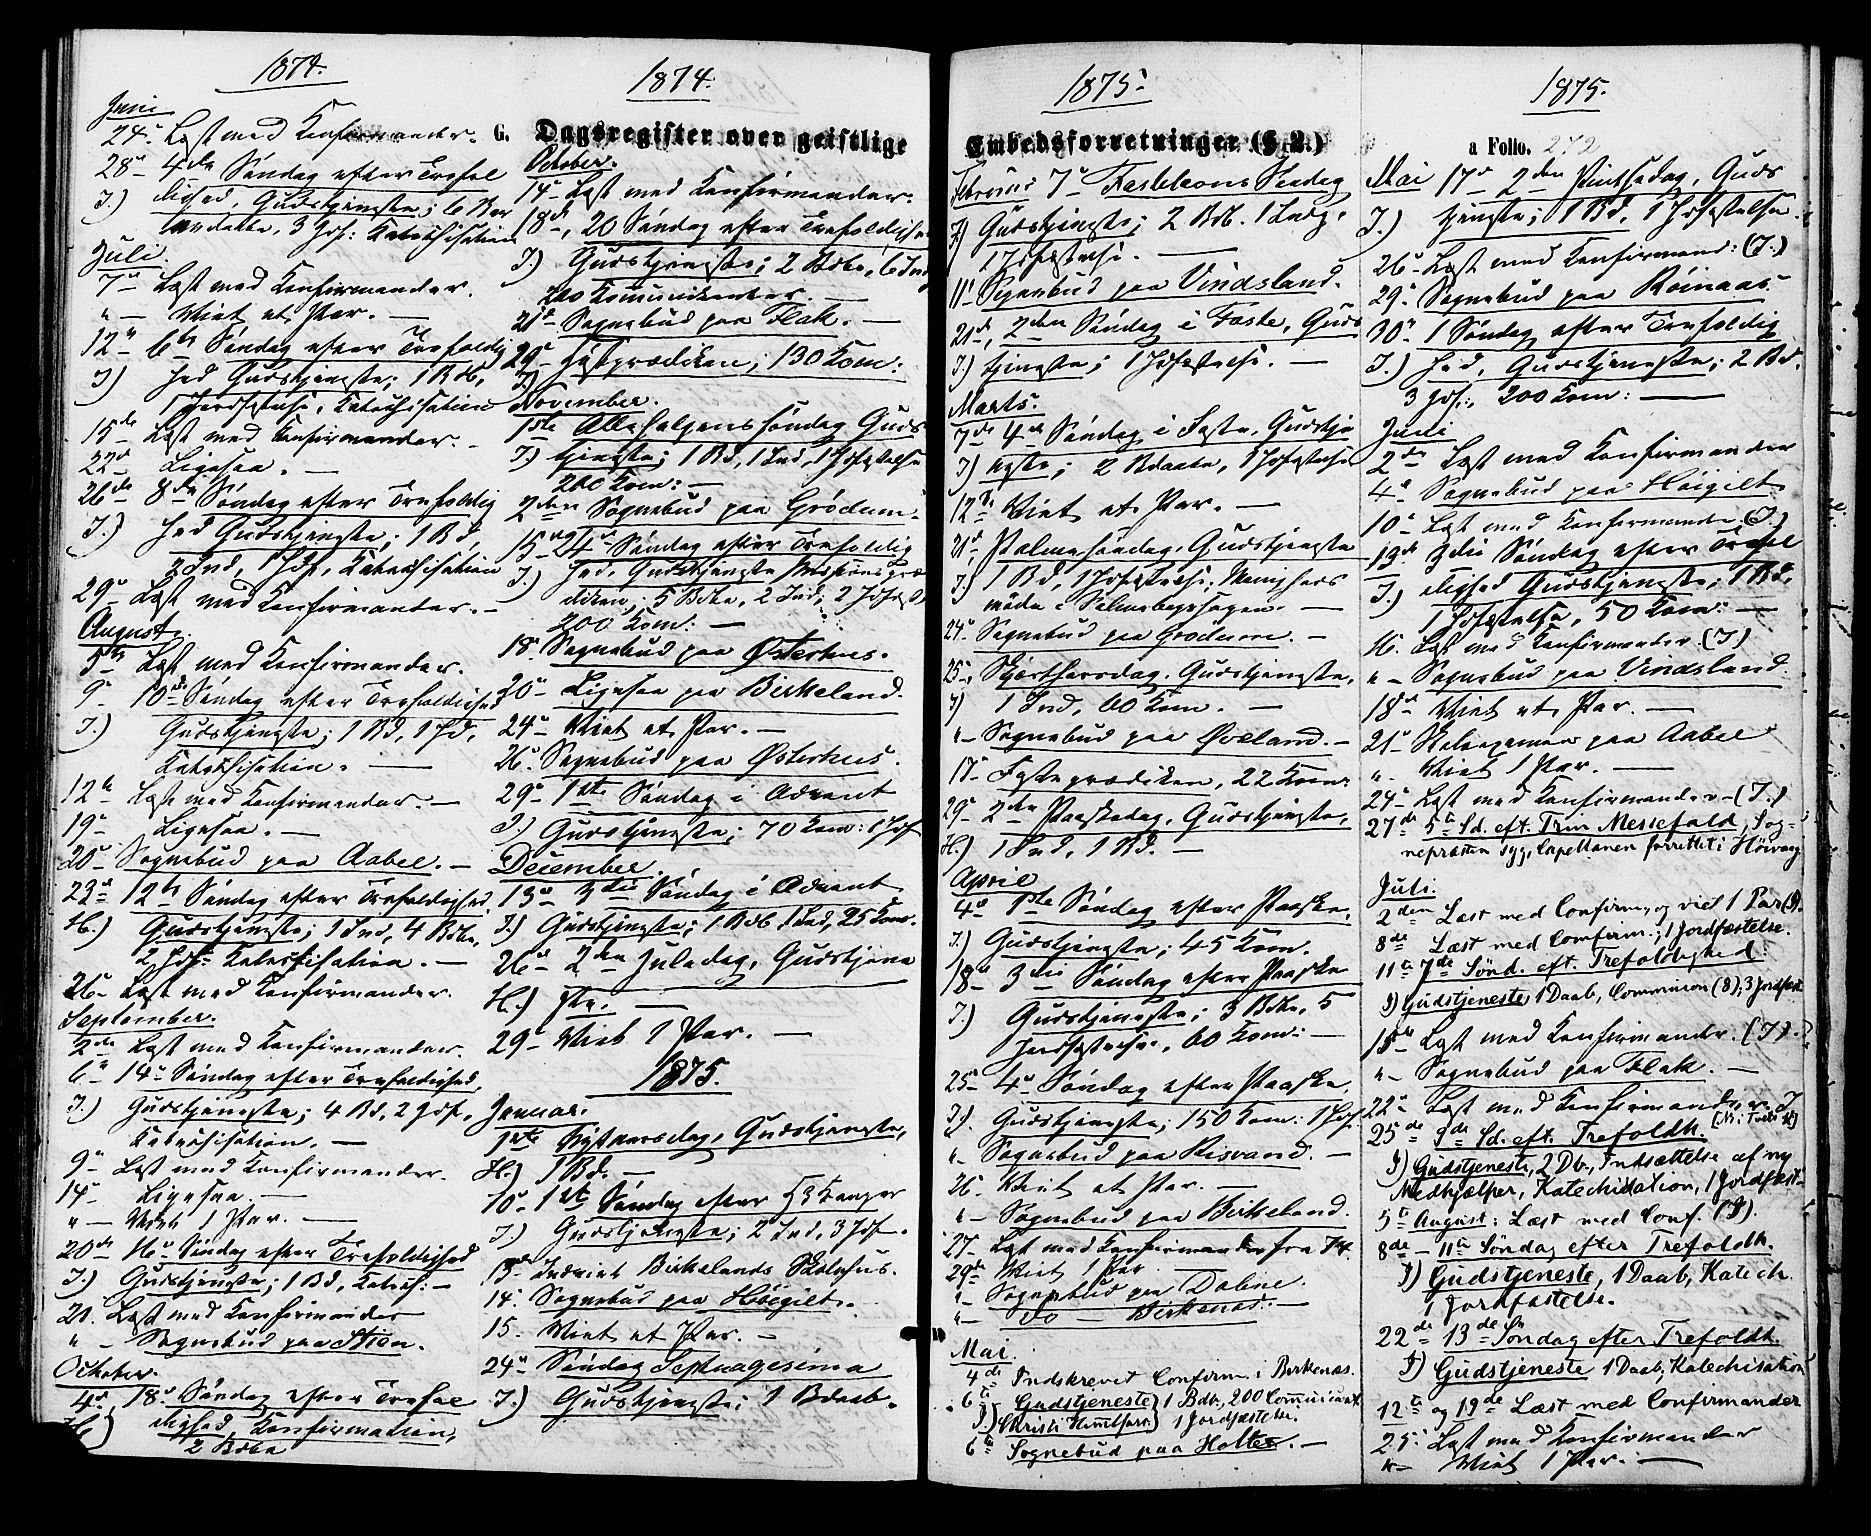 1874.
Juni
24de Læst med Konfirmander.
28de 4de Søndag efter Trefol
I.) dighed, Gudstjeneste; 6 Bør
3 Jof: Katechisation
Juli.
7de Læst med Konfirmander.
" — Viet et Par. —
12te 6te Søndag efter Trefoldig
I) hed Gudstjeneste; 1 Bdb,
1 Jordfæstelse, Katechisation
15de Læst med Konfirmander. -
22de Ligesaa. —
26de 8de Søndag efter Trefoldig
I.) hed Gudstjeneste; 1 Bd,
2 Ind, 1 Jdf, Katechisation
29de Læst med Konfirmander. -
August.
5te Læst med Konfirmander.
9de 10de Søndag efter Trefoldighed
I.) Gudstjeneste; 1 Bd, 1 Jd,
Katechisation. —
12te Læst med Konfirmander. —
19de Ligesaa. —
20de Sognebud paa Aabel. —
23de 12te Søndag efter Trefoldighed,
H.) Gudstjeneste; 1 Ind, 4 Bdbe,
2 Jdf: Katechisation. —
26de Læst med Konfirmander.
September.
2de Læst med Konfirmander.
6te 14de Søndag efter Trefoldighed,
I.) Gudstjeneste; 4 Bd, 2 Jdf,
Katechisation. —
9de Læst med Konfirmander.
14de Ligesaa. —
" — Viet 1 Par. —
20de 16de Søndag efter Trefoldighed
I.) Gudstjeneste; 1 Bd, Katech: —
21. Læst med Konfirmander
" - Sognebud paa Stien.
October.
4de 18de Søndag efter Trefol
H.) dighed, Konfirmation,
2 Bdbe
1874.
G. Dagsregister over geistlige
October.
14de Læst med Konfirmander.
18de, 20 Søndag efter Trefoldighed
I.) Gudstjeneste; 2 Bdbe, 6 Ind
Kommunikanter. —
21de Sognebud paa Flak. —
29de Høstprædiken; 130 Kom:
I.)
November.
1ste Allehelgenssøndag Guds
I.) tjeneste; 1 Bd, 1 Ind, 1 Jdfæstelse
200 Kom: —
2den Sognebud paa Grødum.
15de 24de Søndag efter Trefoldig
I.) hed, Gudstjeneste Missionspræ
diken; 5 Bdbe, 2 Ind; 2 Jdfæst,
200 Kom: —
18. Sognebud paa Østerhus.
20de Ligesaa paa Birkeland.
24de Viet et Par. —
26. Sognebud paa Østerhus.
29de 1ste Søndag i Advent
I.) Gudstjeneste; 70 Kom: 1 Jdf
December.
13de 3die Søndag i Advent
I.) Gudstjeneste; 1 Bdb 1 Ind, 25 Kom.
26de 2den Juledag, Gudstjene
H.) ste. —
29de Viet 1 Par. —
1875.
Januar.
1ste Nytaarsdag, Gudstjeneste,
H.) 1 Bd. —
10de 1ste Søndag efter H 3 Konger
I.) Gudstjeneste; 2 Ind, 3 Jdf.
13de Indviet Birkelands Skolehus.
14. Sognebud paa Høigilt.
15. Viet et Par. —
24de Søndag Septuagesima
I.) Gudstjeneste; 1 Bdaab.
1875.
Embedsforretninger (§ 2.)
Februar 7de Fastelavns Søndag
I) Gudstjeneste; 2 Bdb. 1 Indg.
1 Jofæstelse. —
11te Sognebud paa Vindsland.
21de, 2den Søndag i Faste, Guds
I) tjeneste; 1 Jofæstelse. —
Marts.
7de 4de Søndag i Faste, Gudstje
I) neste; 2 Bdaabe, 1 Jofæstelse
12te Viet et Par. —
21de Palmesøndag, Gudstjeneste
I) 1 Bd, 1 Jofæstelse; Menigheds
møde i Salmebogssagen. —
24de Sognebud paa Grødum. —
25de, Skjærthorsdag, Gudstjeneste,
I) 1 Ind, 60 Kom. —
" - Sognebud paa Øveland. —
17de Fasteprædiken, 22 Kom:
29de 2den Paaskedag, Gudstjeneste,
H.) 1 Ind, 1 Bd. —
April
4de 1ste Søndag efter Paaske,
I.) Gudstjeneste; 45 Kom.
18de 3die Søndag efter Paaske
I.) Gudstjeneste; 3 Bdbe, 5
Jordfæstelser, 60 Kom: —
25de 4de Søndag efter Paaske,
I). Gudstjeneste; 150 Kom: 1 Jof.
" - Sognebud paa Risvand. —
26. Viet et Par. —
" - Sognebud paa Birkeland.
27- Læst med Konfirmander fra H.
29de Viet 1 Par —
" - Sognebud paa Dalene.
" - do — Birkenæs. —
Mai.
4de Indskrevet Confirm. i Birkenæs.
6te Gudstjeneste 1 Bdb, 200 Communicant.
I) Christi Himmelfart. 1 Jordfæstelse.
6te Sognebud paa Holte. —
1875.
a Folio. 272
Mai 17de 2den Pintsedag, Guds
I.) tjeneste; 1 Bd, 1 Jofæstelse.
26de Læst med Konfirmand: (I.)
29de Sognebud paa Røinaas
30de 1 Søndag efter Trefoldig
I.) hed, Gudstjeneste; 2 Bd.
3 Jof., 200 Kom: —
Juni
2den Læst med Konfirmander
4de Sognebud paa Høigilt
10de Læst med Konfirmander (I.)
13de 3die Søndag efter Trefol
I.) dighed Gudstjeneste; 1 Bd,
1 Jofæstelse, 50 Kom: —
16. Læst med Konfirmander (I)
" - Sognebud paa Vindsland.
18de Viet et Par. —
21de paa Aabel
" - Viet 1 Par. —
24de Læst med Konfirmander - (I.)
27de 5te Sd. eft. Trin Messefald, Sog-
nepræsten syg, Capellanen forrettet i Høivaag
Juli.
2den Læst med Confirm, og viet 1 Par (I).
8de Læst med Comfirm.; 1 Jordfæstelse.
11te 7de Sønd. eft. Trefoldighed.
I) Gudstjeneste, 1 Daab, Commnion (8); 3 Jordfæst.
15de Læst med Konfirmander. (I).
" - Sognebud paa Flak. —
22de Læst med Konfirmander. I
25de 9de Sd. eft. Trefoldh.
I) Gudstjeneste, 2 Db., Indsættelse af ny
Medhjælper, Katechisation, 1 Jordfæst.
5te August: Læst med Conf. (I).
8de — 11te Søndag efter Trefoldh.
I) Gudstjeneste, 1 Daab, Katech.
1 Jordfæstelse.
22de 13de Søndag efter Trefoldh.
I) Gudstjeneste 1 Daab, Katechisation
12te og 19de Læst med Confirmander
25de Læst med Konfirmander
" — Viet 1 Par. —